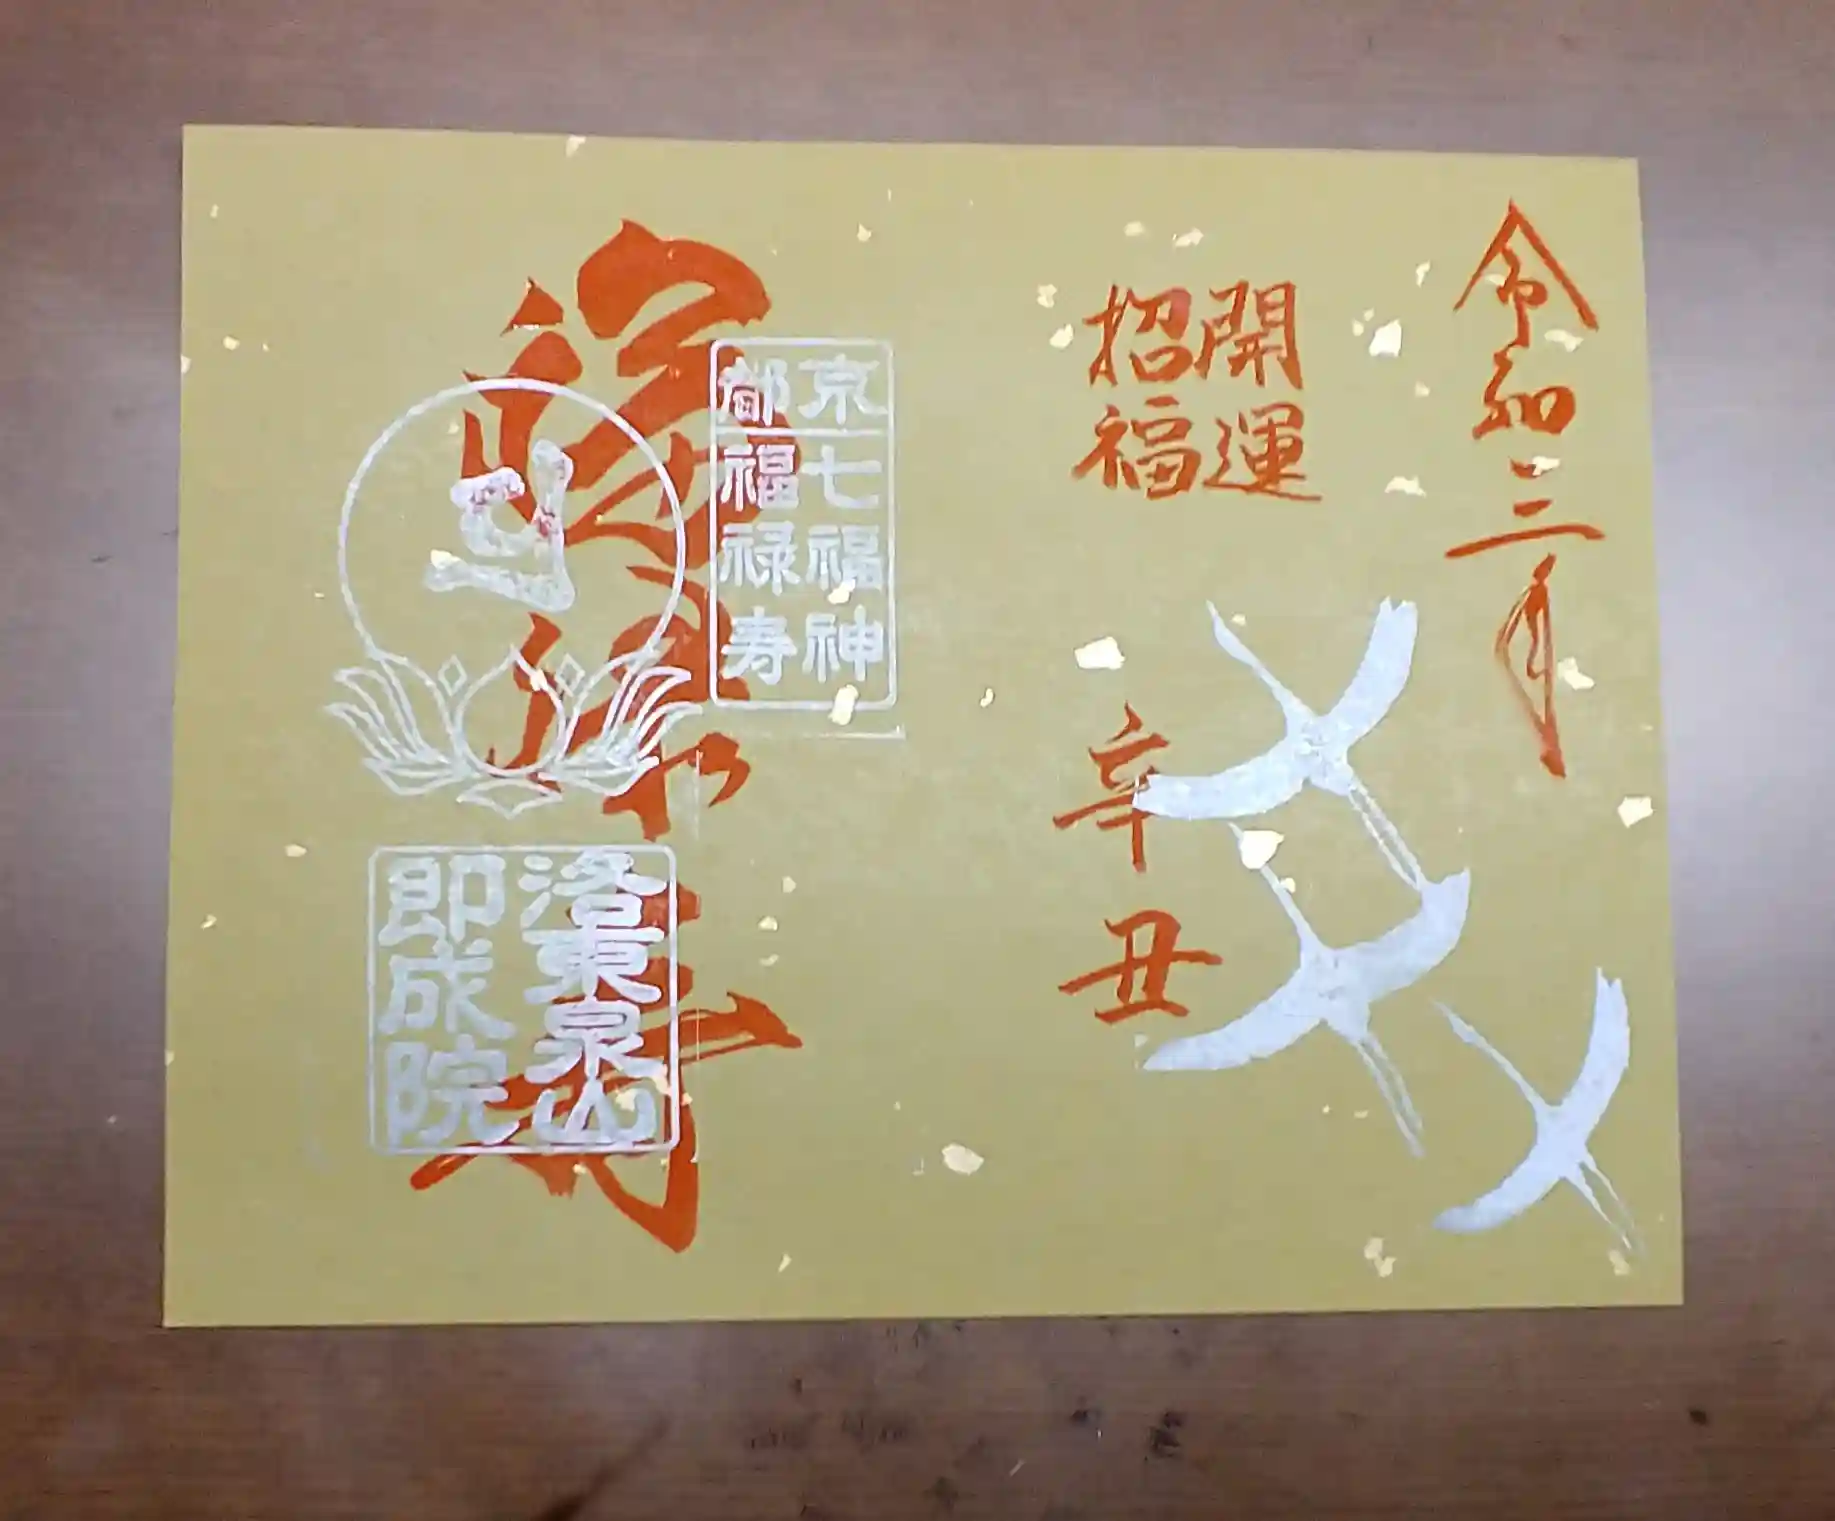 令和三年
開運
招福
辛丑
京都
七福神
福禄寿
福禄寿
洛東泉山
即成院